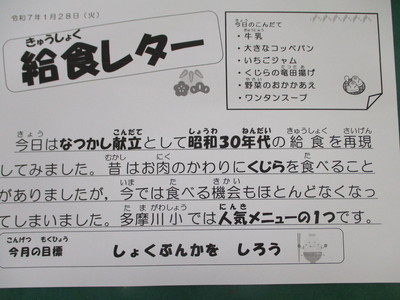 令和7年1月28日（火）
きゅうしょく
給食レター
今日のこんだて
・牛乳
・大きなコッペパン
・いちごジャム
・くじらの竜田揚げ
・野菜のおかかあえ
・ワンタンスープ
今日はなつかし献立として昭和30年代の給食を再現
してみました。昔はお肉のかわりにくじらを食べること
がありましたが，今では食べる機会もほとんどなくなっ
てしまいました。多摩川小では人気メニューの1つです。
こんげつ もくひょう
今月の目標 しょくぶんかを しろう